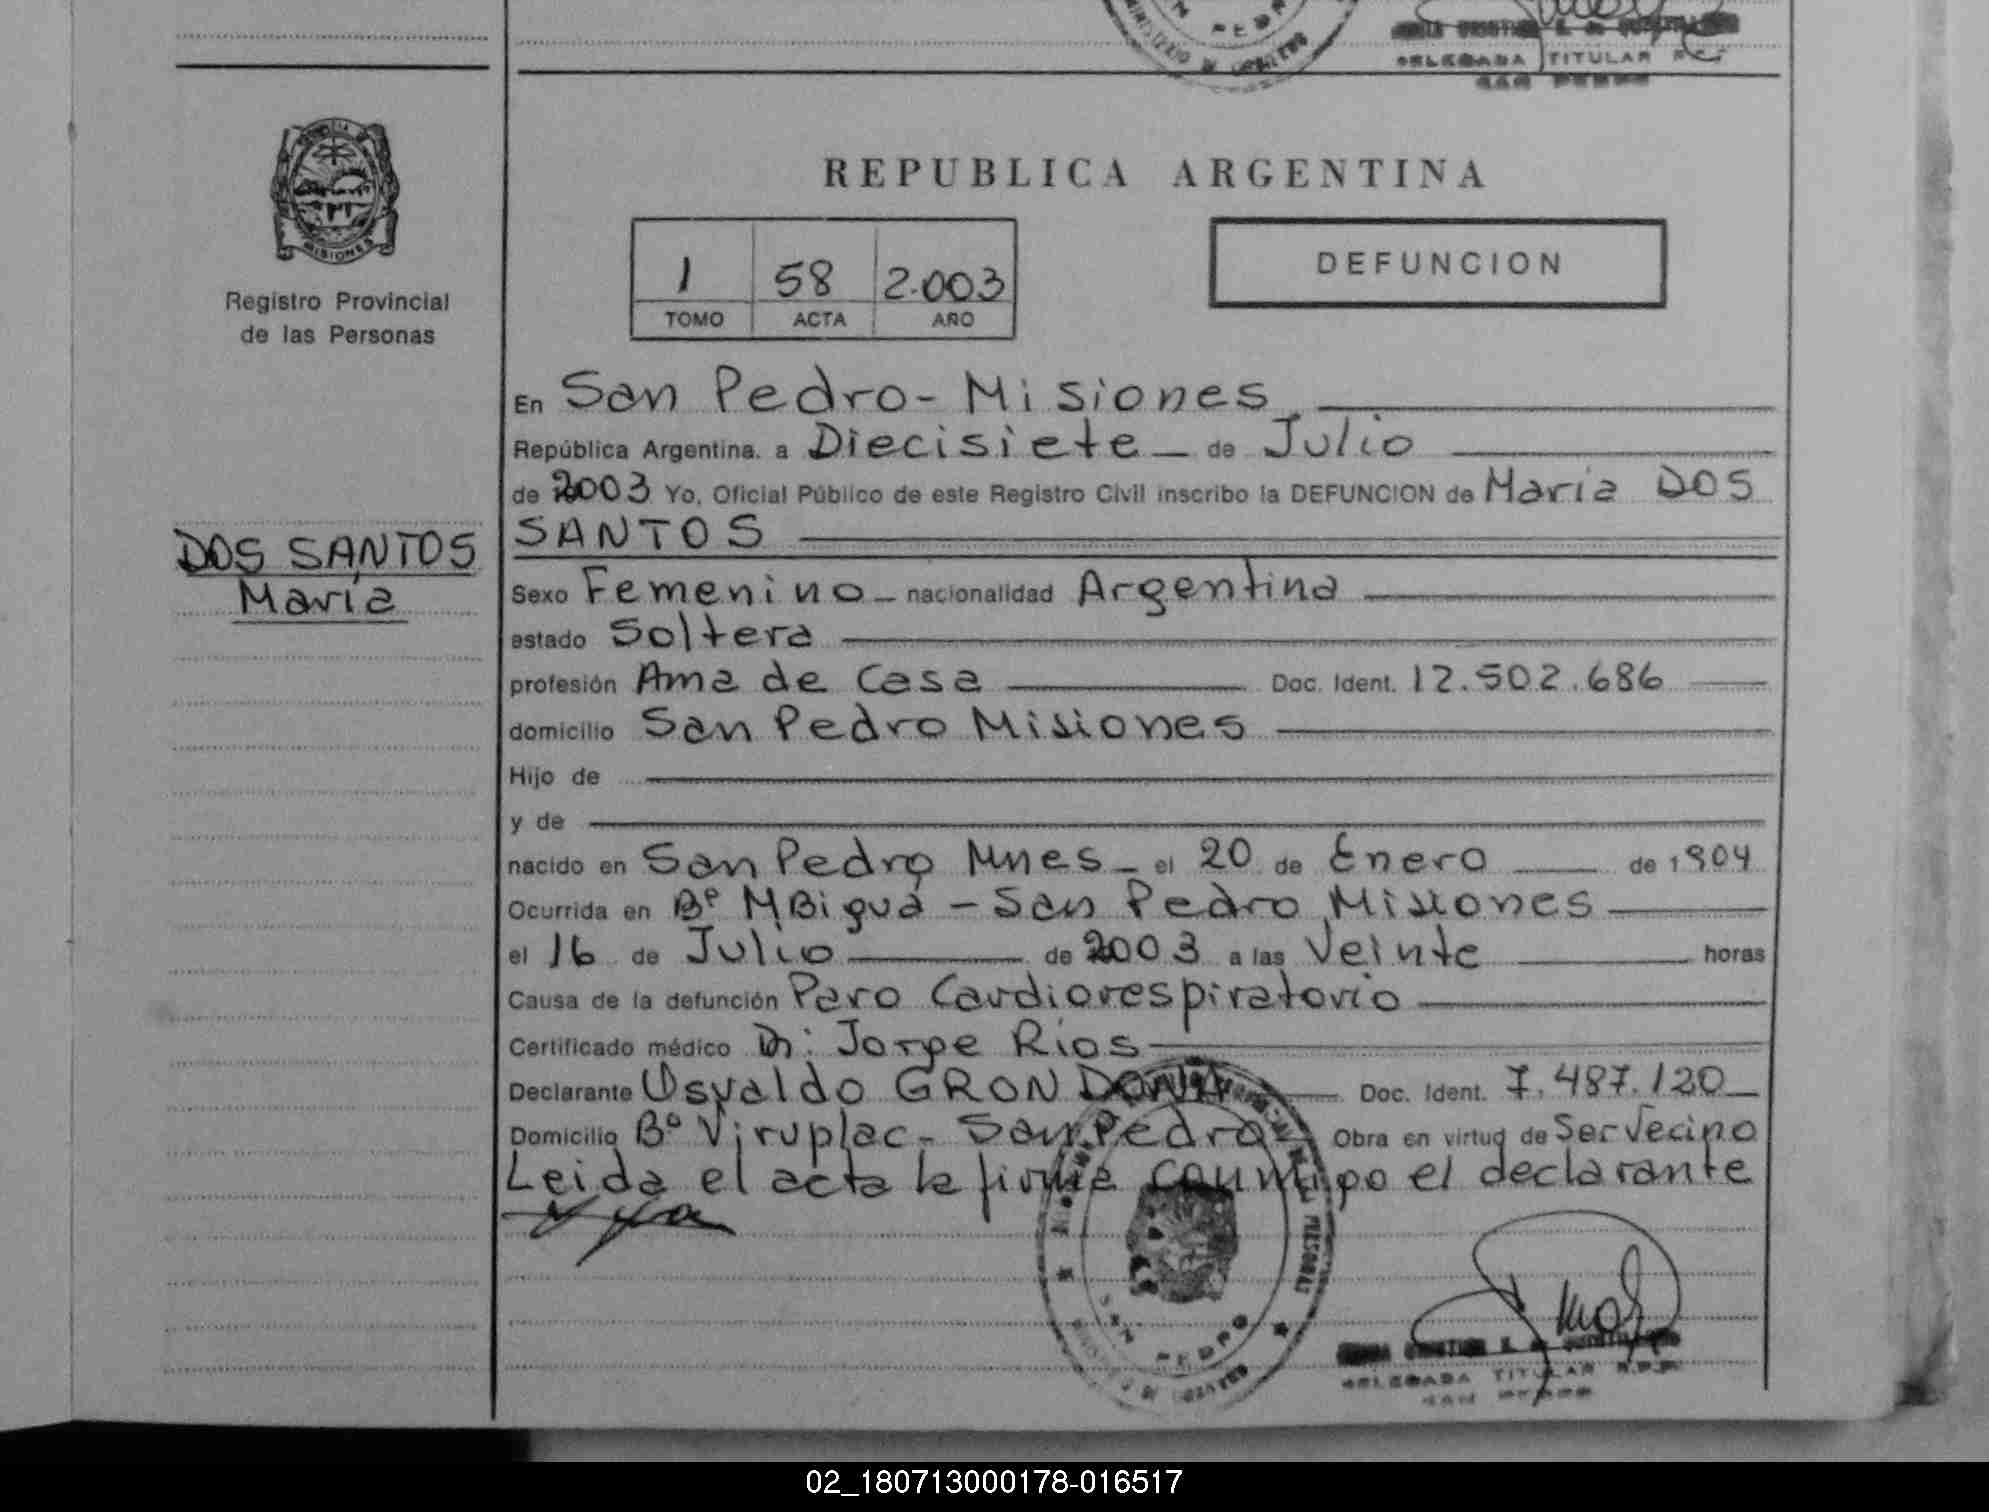 SAN PEDRO
DELEGADA TITULAR R.P.P.
SAN PEDRO
PROVINCIA DE
MISIONES
Registro Provincial
de las Personas
REPUBLICA ARGENTINA
1 58 2.003
TOMO ACTA AÑO
DEFUNCION
En San Pedro - Misiones
República Argentina. a Diecisiete de Julio
de 2003 Yo, Oficial Público de este Registro Civil inscribo la DEFUNCION de María DOS
SANTOS
DOS SANTOS
María
Sexo Femenino nacionalidad Argentina
estado Soltera
profesión Ama de Casa Doc. Ident. 12.502.686
domicilio San Pedro Misiones
Hijo de
y de
nacido en San Pedro Mnes - el 20 de Enero de 1904
Ocurrida en Bº MBiguá - San Pedro Misiones
el 16 de Julio de 2003 a las Veinte horas
Causa de la defunción Paro Cardiorespiratorio
Certificado médico Dr: Jorge Rios
Declarante Osvaldo GRONDONA Doc. Ident. 7.487.120
Domicilio Bº Viruplac - San Pedro Obra en virtud de Ser Vecino
Leida el acta la firma conmigo el declarante
SAN PEDRO
DELEGADA TITULAR R.P.P.
SAN PEDRO
02_180713000178-016517